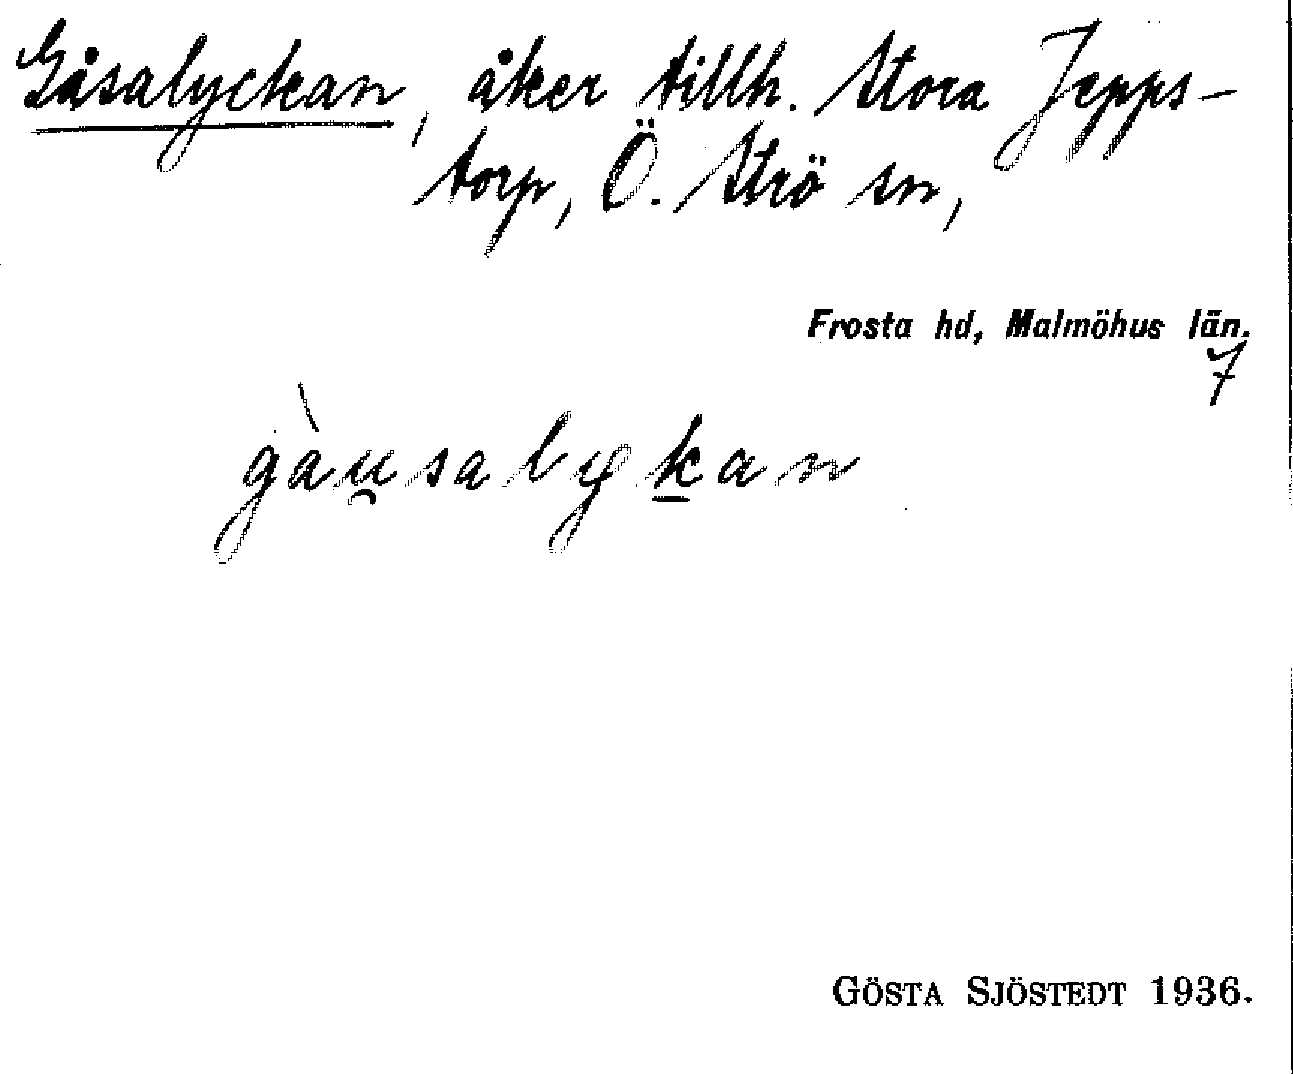 Gåsalyckan, åker tillh. Stora Jepps-
torp, Ö. Strö sn,
Frosta hd, Malmöhus län.
7
gàu̯salyk̠an
GÖSTA SJÖSTEDT 1936.